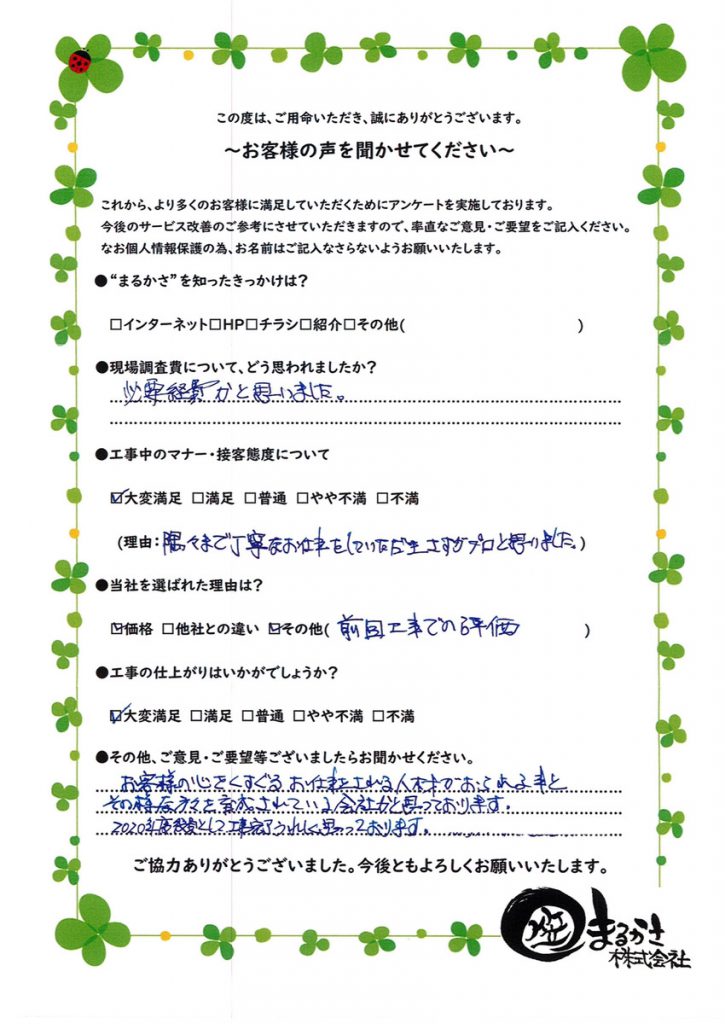 この度は、ご用命いただき、誠にありがとうございます。
～お客様の声を聞かせてください～
これから、より多くのお客様に満足していただくためにアンケートを実施しております。
今後のサービス改善のご参考にさせていただきますので、率直なご意見・ご要望をご記入ください。
なお個人情報保護の為、お名前はご記入なさらないようお願いいたします。
●“まるかさ”を知ったきっかけは？
□インターネット□HP□チラシ□紹介□その他( )
●現場調査費について、どう思われましたか？
必要経費かと思いました。
●工事中のマナー・接客態度について
☑大変満足 □満足 □普通 □やや不満 □不満
(理由：隅々まで丁寧なお仕事をしていただきさすがプロと思いました。)
●当社を選ばれた理由は？
☑価格 □他社との違い ☑その他( 前回工事での評価 )
●工事の仕上がりはいかがでしょうか？
☑大変満足 □満足 □普通 □やや不満 □不満
●その他、ご意見・ご要望等ございましたらお聞かせください。
お客様の心をくすぐるお仕事をされる人材であふれる事と
その様な方々を育成されている会社かと思っております。
2020年 として工事完了うれしく思っております。
ご協力ありがとうございました。今後ともよろしくお願いいたします。
まるかさ
株式会社